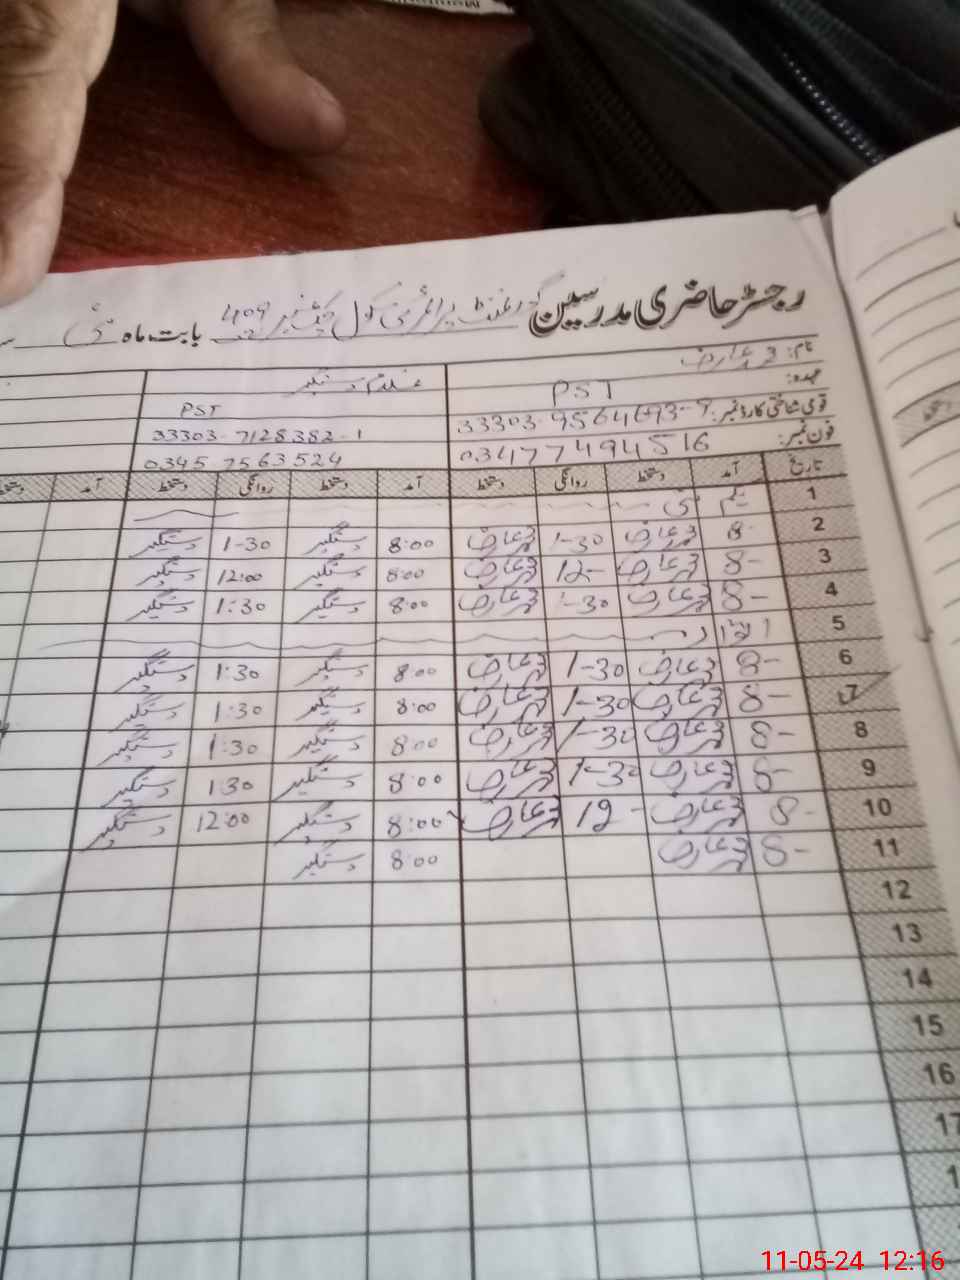 رجسٹر حاضری مدرسین گورنمنٹ پرائمری سکول چک نمبر 409 بابت ماہ مئی
نام: محمد عارف غلام دستگیر
عہدہ: PST PST
قومی شناختی کارڈ نمبر: 33303-7128382-1
فون نمبر: 03477494516 0345 7563524
تاریخ آمد دستخط روانگی دستخط آمد دستخط روانگی دستخط آمد دستخط
1 یکم مئی
2 8- محمد عارف 1-30 محمد عارف 8:00 دستگیر 1-30 دستگیر
3 8- محمد عارف 12- محمد عارف 8:00 دستگیر 12:00 دستگیر
4 8- محمد عارف 1-30 محمد عارف 8:00 دستگیر 1:30 دستگیر
5 اتوار
6 8- محمد عارف 1-30 محمد عارف 8:00 دستگیر 1:30 دستگیر
7 8- محمد عارف 1-30 محمد عارف 8:00 دستگیر 1:30 دستگیر
8 8- محمد عارف 1-30 محمد عارف 8:00 دستگیر 1:30 دستگیر
9 8- محمد عارف 1-30 محمد عارف 8:00 دستگیر 1 30 دستگیر
10 8- محمد عارف 12- محمد عارف 8:00 دستگیر 12:00 دستگیر
11 8- محمد عارف 8:00 دستگیر
12
13
14
15
16
17
11-05-24 12:16